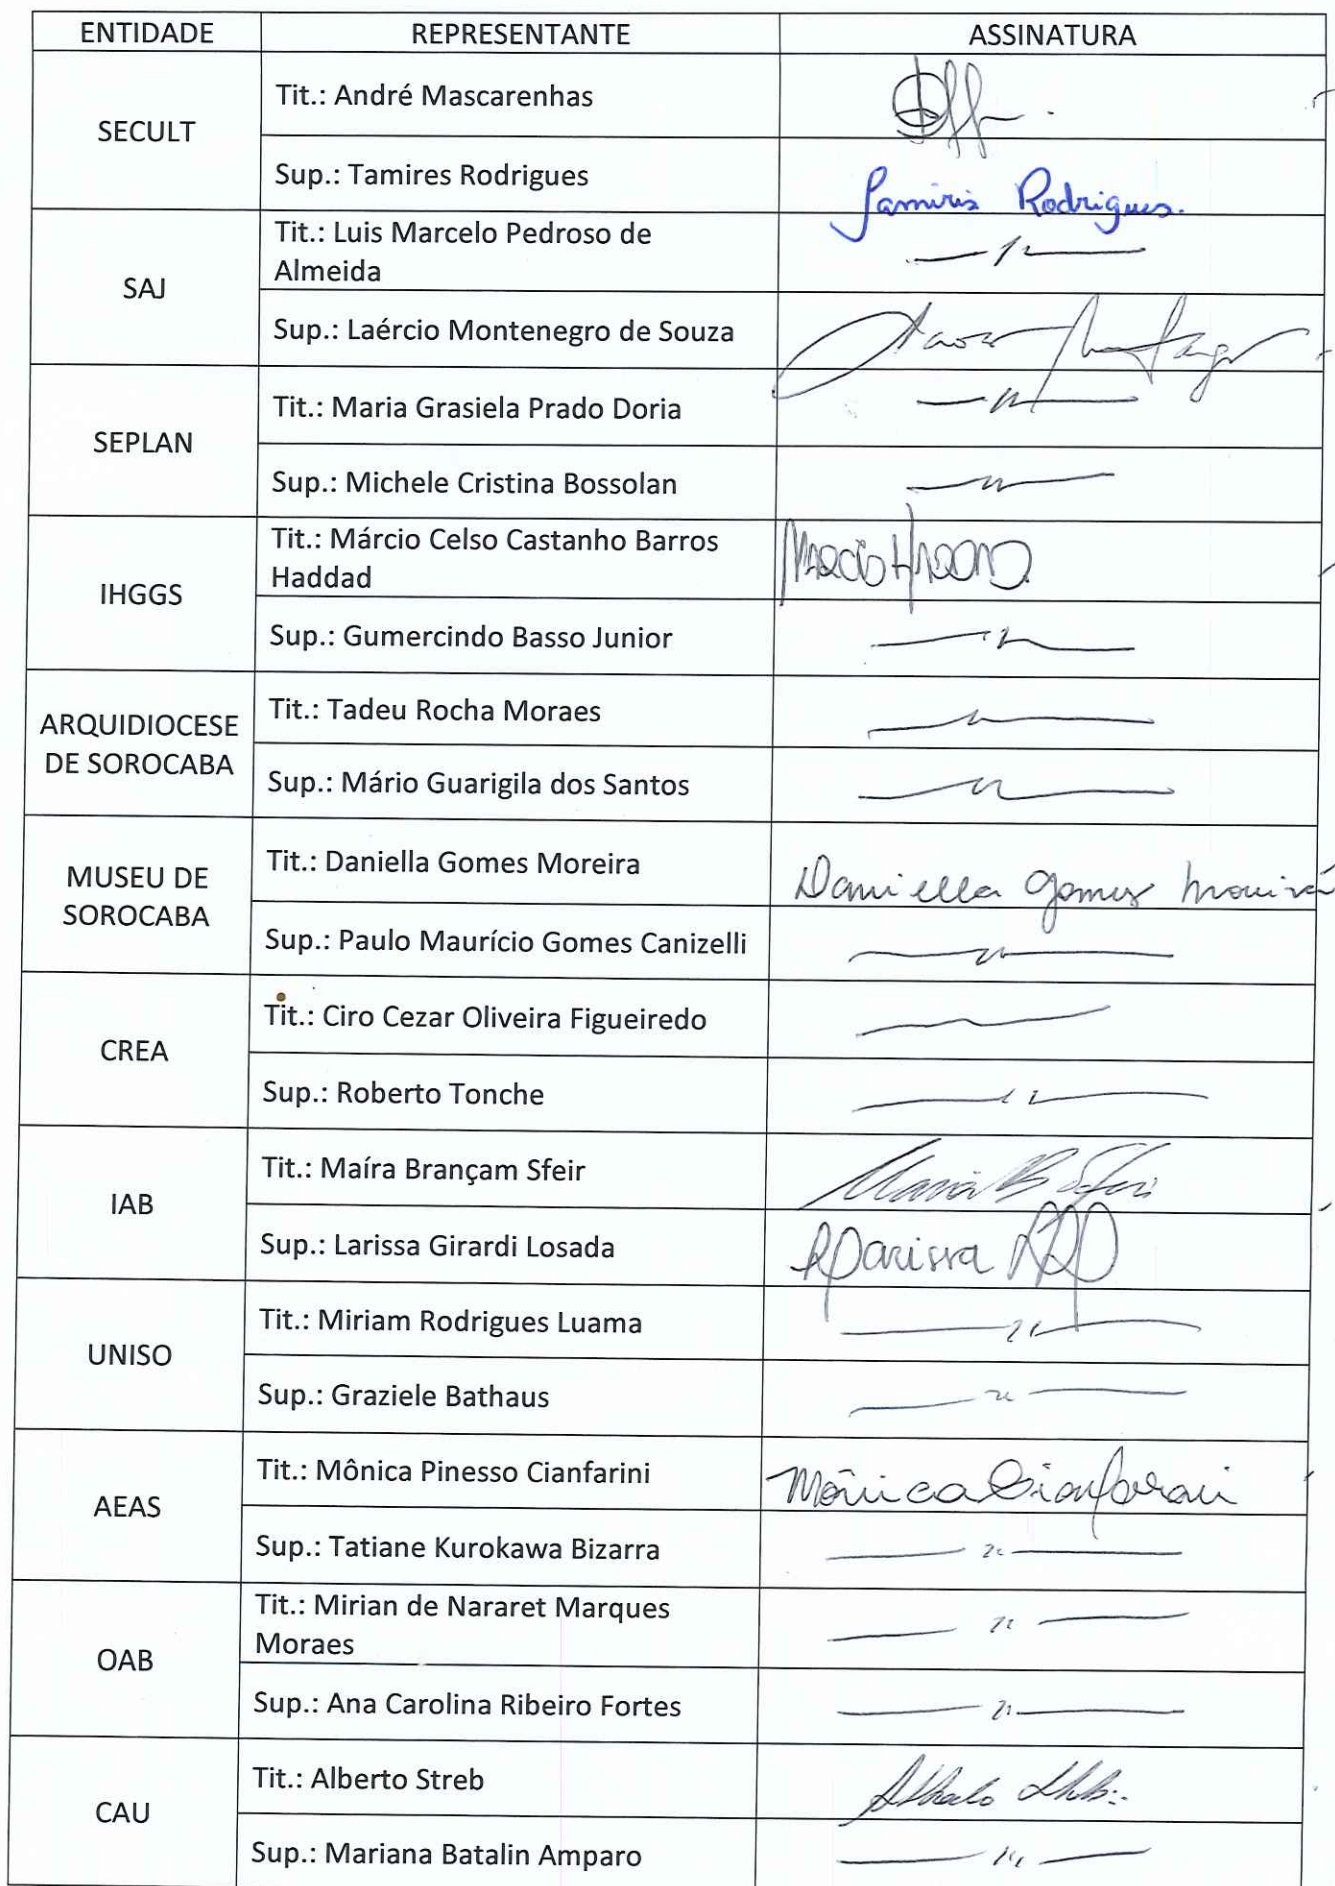 ENTIDADE REPRESENTANTE ASSINATURA
SECULT
Tit.: André Mascarenhas
Sup.: Tamires Rodrigues Tamiris Rodrigues.
SAJ
Tit.: Luis Marcelo Pedroso de
Almeida
Sup.: Laércio Montenegro de Souza
SEPLAN
Tit.: Maria Grasiela Prado Doria
Sup.: Michele Cristina Bossolan
IHGGS
Tit.: Márcio Celso Castanho Barros
Haddad
Marcio Haddad
Sup.: Gumercindo Basso Junior
ARQUIDIOCESE
DE SOROCABA
Tit.: Tadeu Rocha Moraes
Sup.: Mário Guarigila dos Santos
MUSEU DE
SOROCABA
Tit.: Daniella Gomes Moreira Daniella Gomes Moreira
Sup.: Paulo Maurício Gomes Canizelli
CREA
Tit.: Ciro Cezar Oliveira Figueiredo
Sup.: Roberto Tonche
IAB
Tit.: Maíra Brançam Sfeir
Sup.: Larissa Girardi Losada Larissa
UNISO
Tit.: Miriam Rodrigues Luama
Sup.: Graziele Bathaus
AEAS
Tit.: Mônica Pinesso Cianfarini Mônica Cianfarani
Sup.: Tatiane Kurokawa Bizarra
OAB
Tit.: Mirian de Nararet Marques
Moraes
Sup.: Ana Carolina Ribeiro Fortes
CAU
Tit.: Alberto Streb
Sup.: Mariana Batalin Amparo